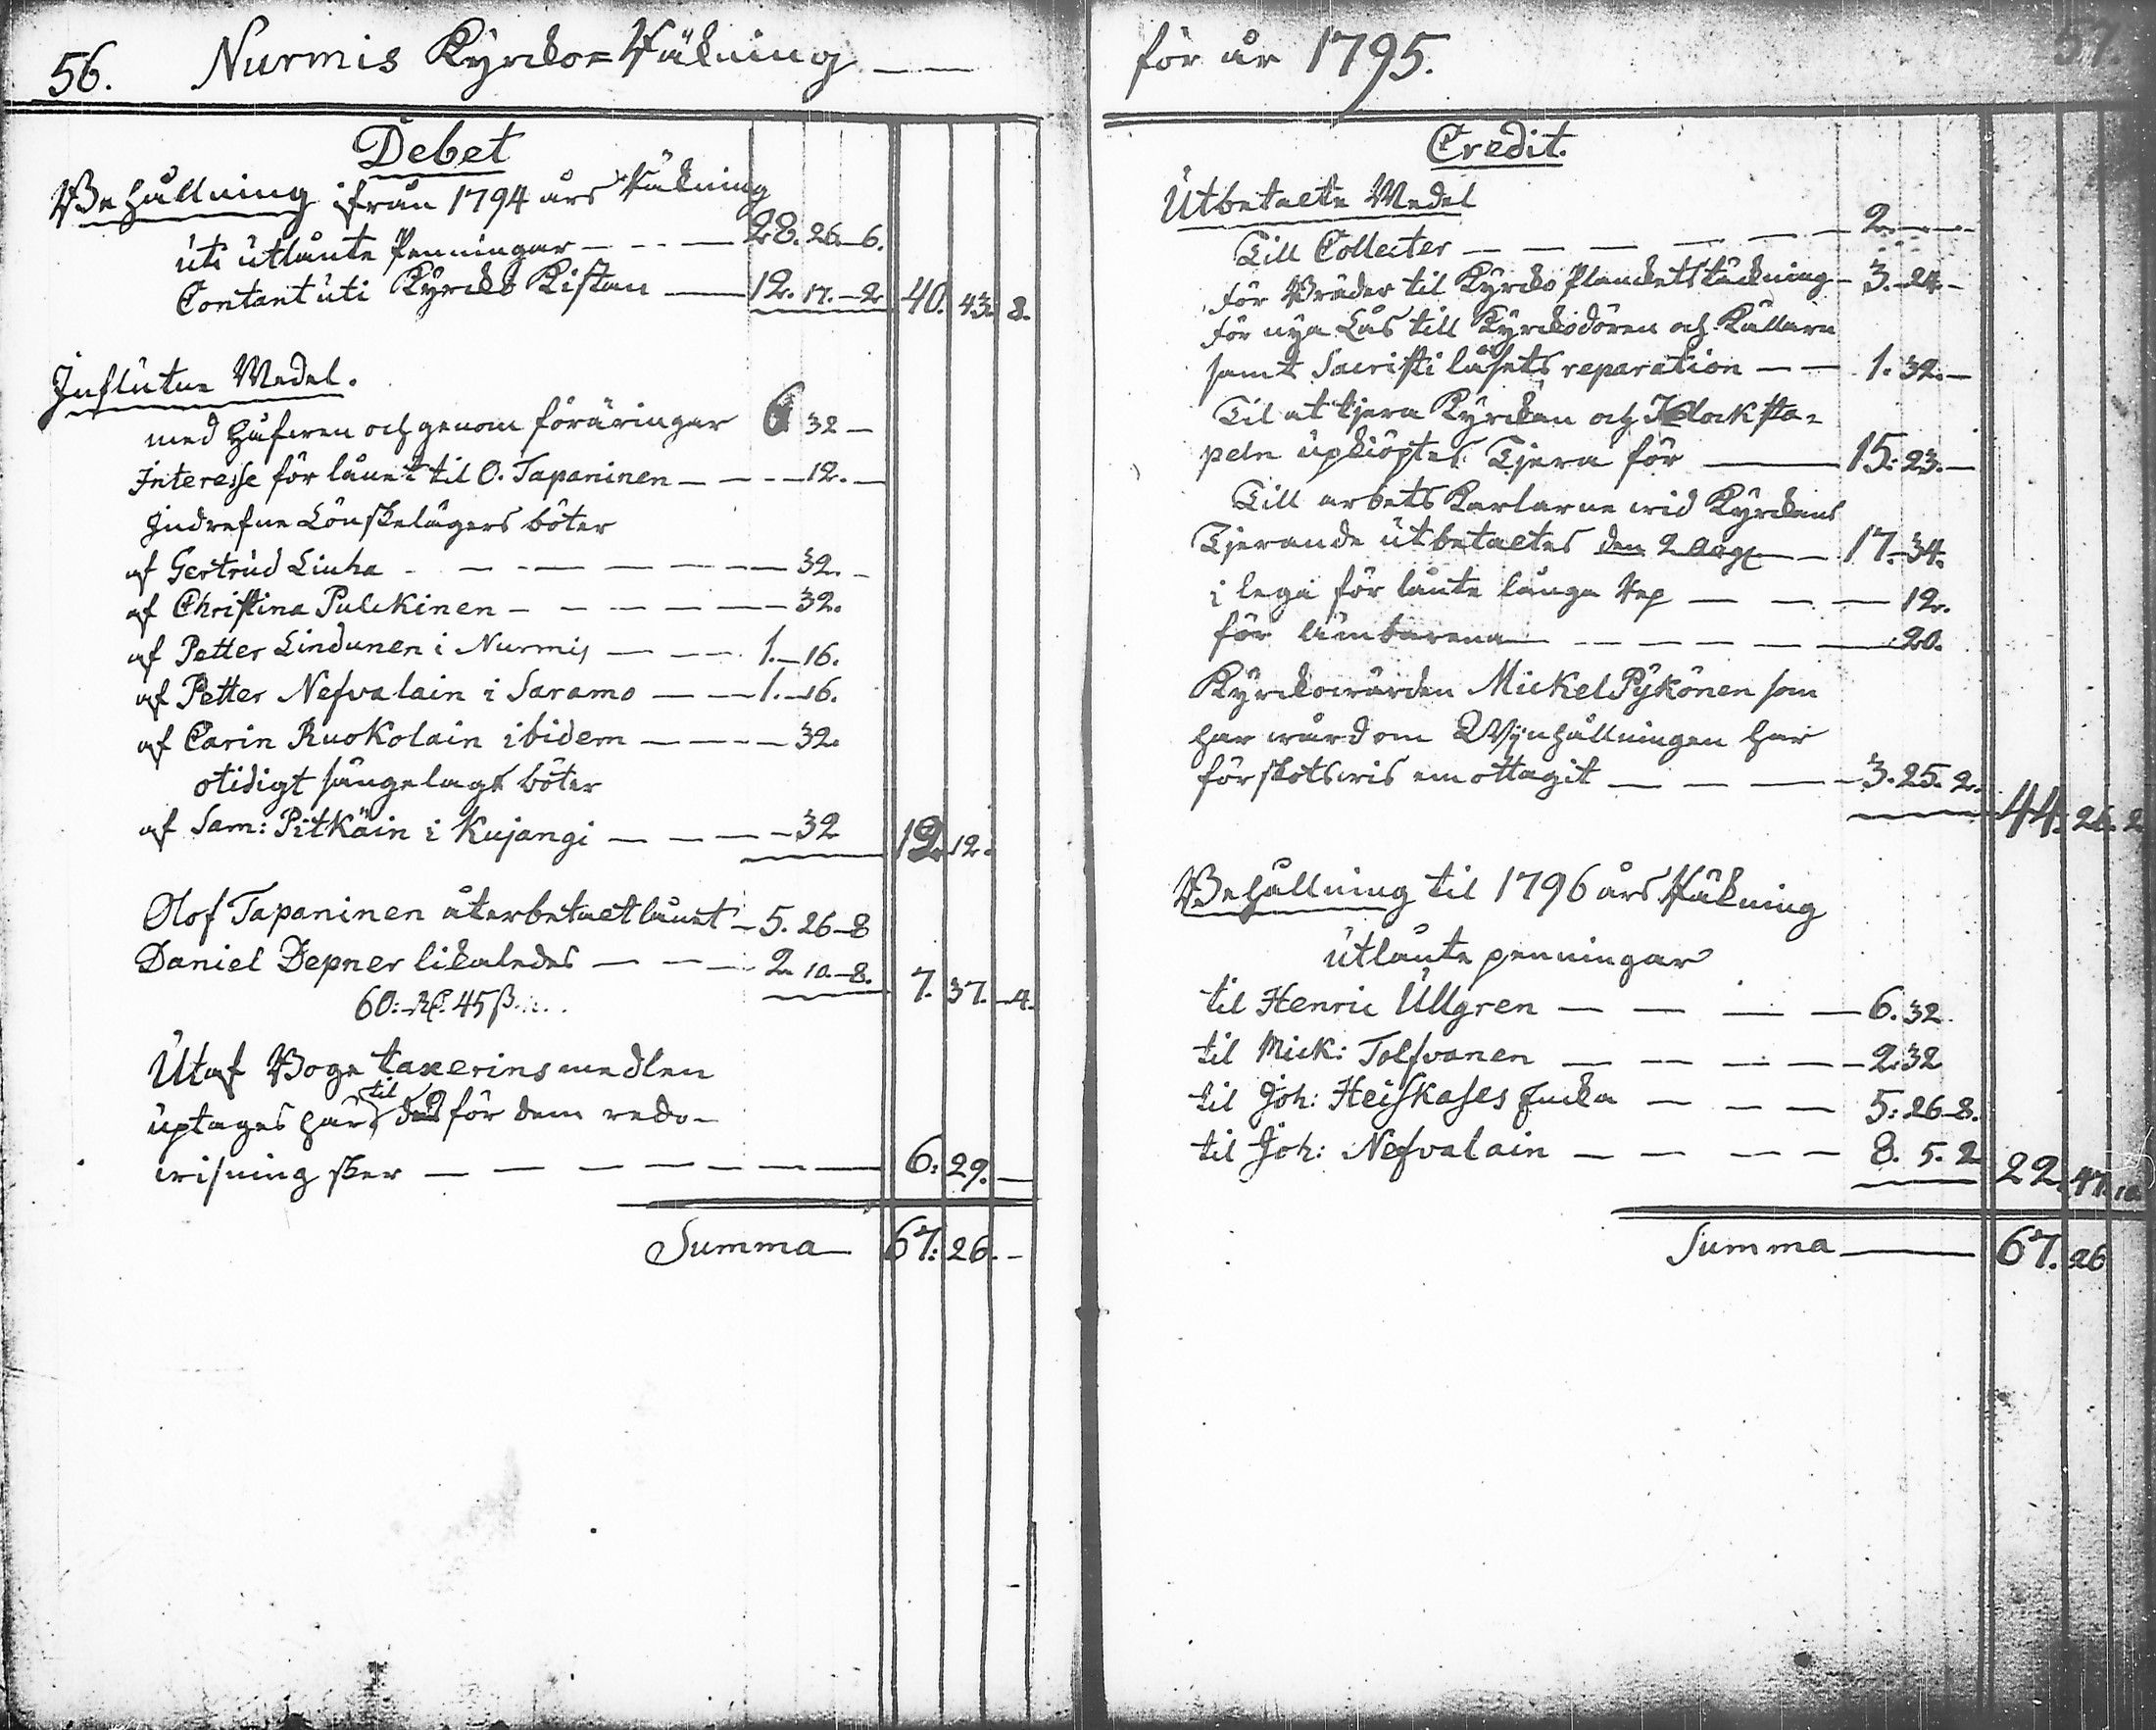 56. Nurmis Kyrcko=Räkning
Debet
Behållning ifrån 1794 års Räkning
uti utlånte Penningar 28. 26. 6.
Contant uti Kyrcko Kistan 12. 17. 2 40. 43. 8.
Influtne Medel.
med håfwen och genom föräringar 6 32
Interesse för lånet til O. Tapaninen 12.
Indrefne Lönskelägers böter
af Gertrud Liuha 32.
af Christina Pulckinen 32.
af Petter Lindunen i Nurmis 1. 16.
af Petter Nefvalain i Saramo 1. 16.
af Carin Ruokolain ibidem 32.
otidigt sängelags böter
af Sam: Pitkäin i Kujangi 32 12. 12.
Olof Tapaninen återbetalt lånet 5. 26 8
Daniel Depner likaledes 2. 10 8. 7. 37. 4.
60: Rd. 45 ß.
Utaf Boge taxerins medlen
uptages här til des för dem redo-
wisning sker 6. 29.
Summa 67. 26.
för år 1795. 57.
Credit.
Utbetalte Medel
Till Collecter 2.
För Bräder til Kyrcko Planckets täckning 3. 24.
För nya Lås till Kyrckodören och Källarn
samt Sacristi låsets reparation 1. 32.
Til at tjera Kyrckan och Klocksta=
peln upkiöptes Tjera för 15. 23.
Till arbets Karlarne wid Kyrckans
Tjerande utbetaltes den 2 Aug 17. 34.
i lega för lånte långa Rep 12.
för ämbarena 20.
Kyrckowärden Mickel Pykönen som
har wård om Wijnhållningen har
förskotswis emottagit 3. 25. 2. 44. 26. 2
Behållning til 1796 års Räkning
utlånte penningar
til Henric Ullgren 6. 32
til Mick: Tolfvanen 2. 32
til Joh: Heiskases Encka 5. 26 8.
til Joh: Nefvalain 8. 5. 2 22. 47. 10
Summa 67. 26